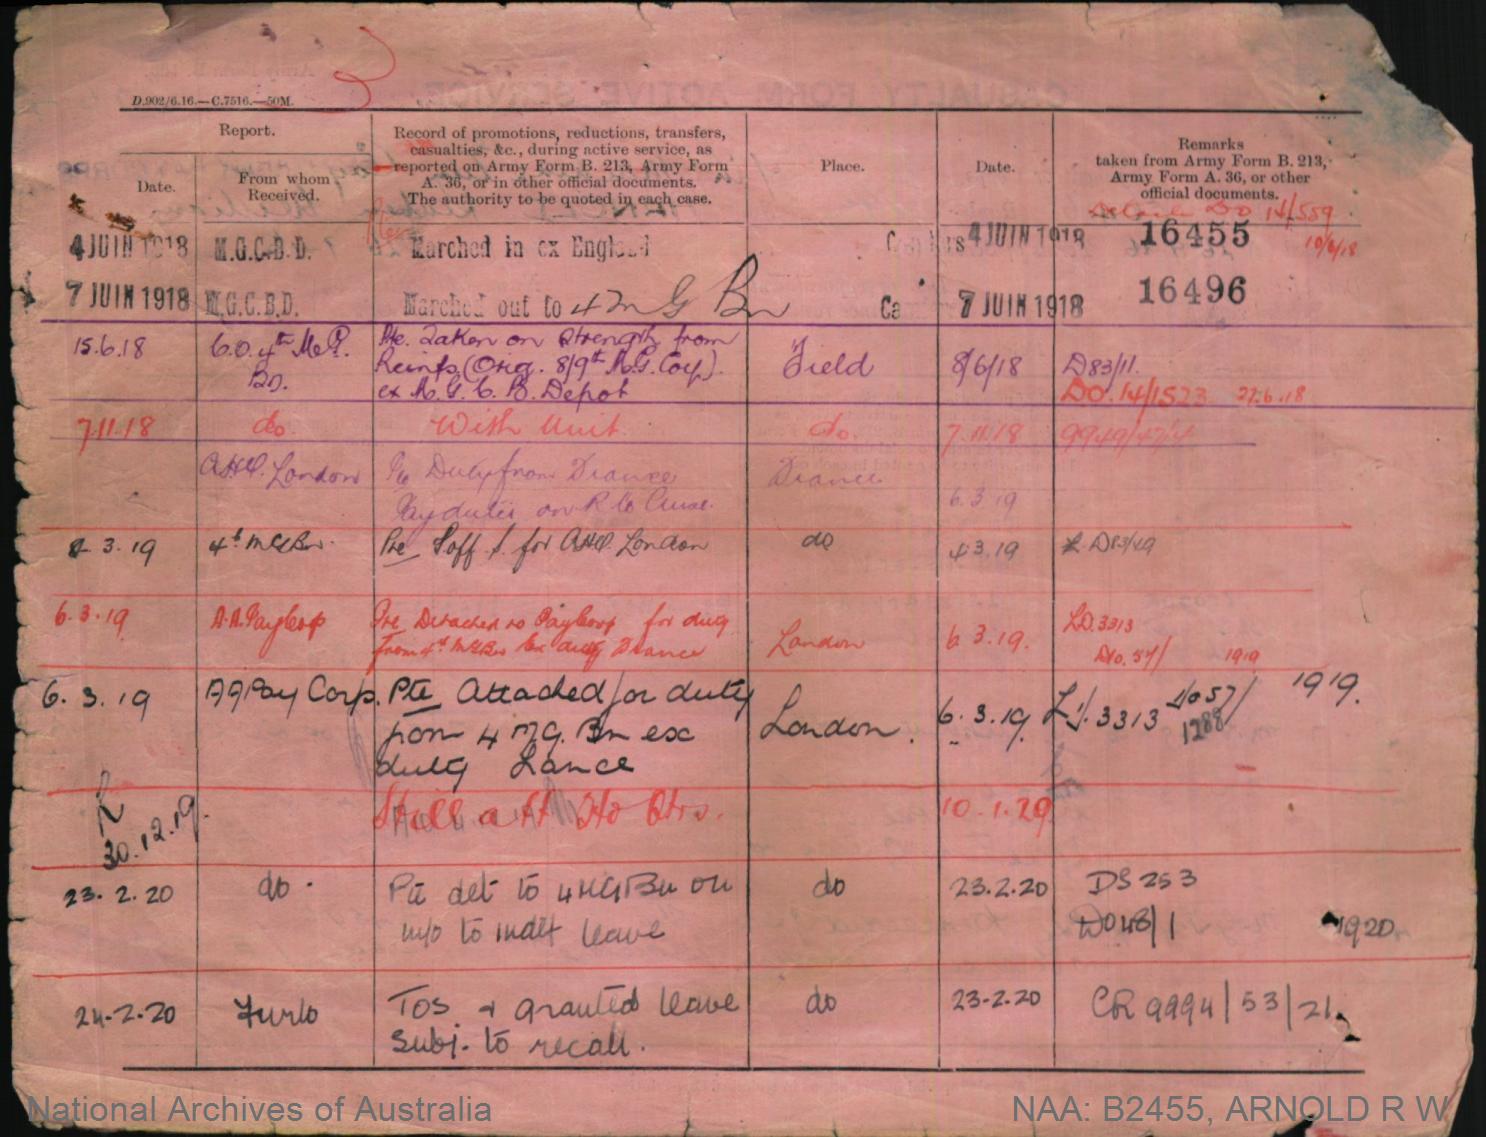 D.902/6.16.—C.7516.—50M.
Report.
Record of promotions, reductions, transfers,
casualties, &c., during active service, as
reported on Army Form B. 213, Army Form
A. 36, or in other official documents.
The authority to be quoted in each case.
Place.
Date.
Remarks
taken from Army Form B. 213,
Army Form A. 36, or other
official documents.
Date.
From whom
Received.
DO 14/559
10/6/18
4 JUIN 1918 M.G.C.B.D. Marched in ex England 4 JUIN 1918 16455
7 JUIN 1918 M.G.C.B.D. Marched out to 4 M G Bn Ca 7 JUIN 1918 16496
15.6.18 C.O. 4th M.G. Pte. Taken on Strength from Field 8/6/18 D83/11.
Bn. Reinfs. (Orig. 8/9th M.G. Corp).
ex M.G.C.B. Depot DO. 14/1523 27.6.18
7.11.18 do. With Unit. do. 7.11.18 9949/47/4
A.H.Q. London Duty from France France 6.3.19
Pay duties on
8.3.19 4th MG Bn. Pte for AHQ. London do 4.3.19 D83/49
6.3.19 A.A. Pay Corp Pte Detached to Pay Corp for duty London 6.3.19. LD. 3313
from 4th MG Bn ex duty France DO. 57/ 1919
6.3.19 AA Pay Corp. Pte Attached for duty London. 6.3.19. 3313 DO 57/ 1919.
from 4 M.G. Bn exc 1288
duty France
30.12.19. Still att Hd Qtrs. 10.1.20
23.2.20 do. Pte det to 4 MG Bn on do 23.2.20 DS 253
m/o to indft leave DO 48/1 1920
24.2.20 Furlo TOS & granted leave do 23.2.20 CR 9994/53/21.
subj. to recall.
National Archives of Australia
NAA: B2455, ARNOLD R W